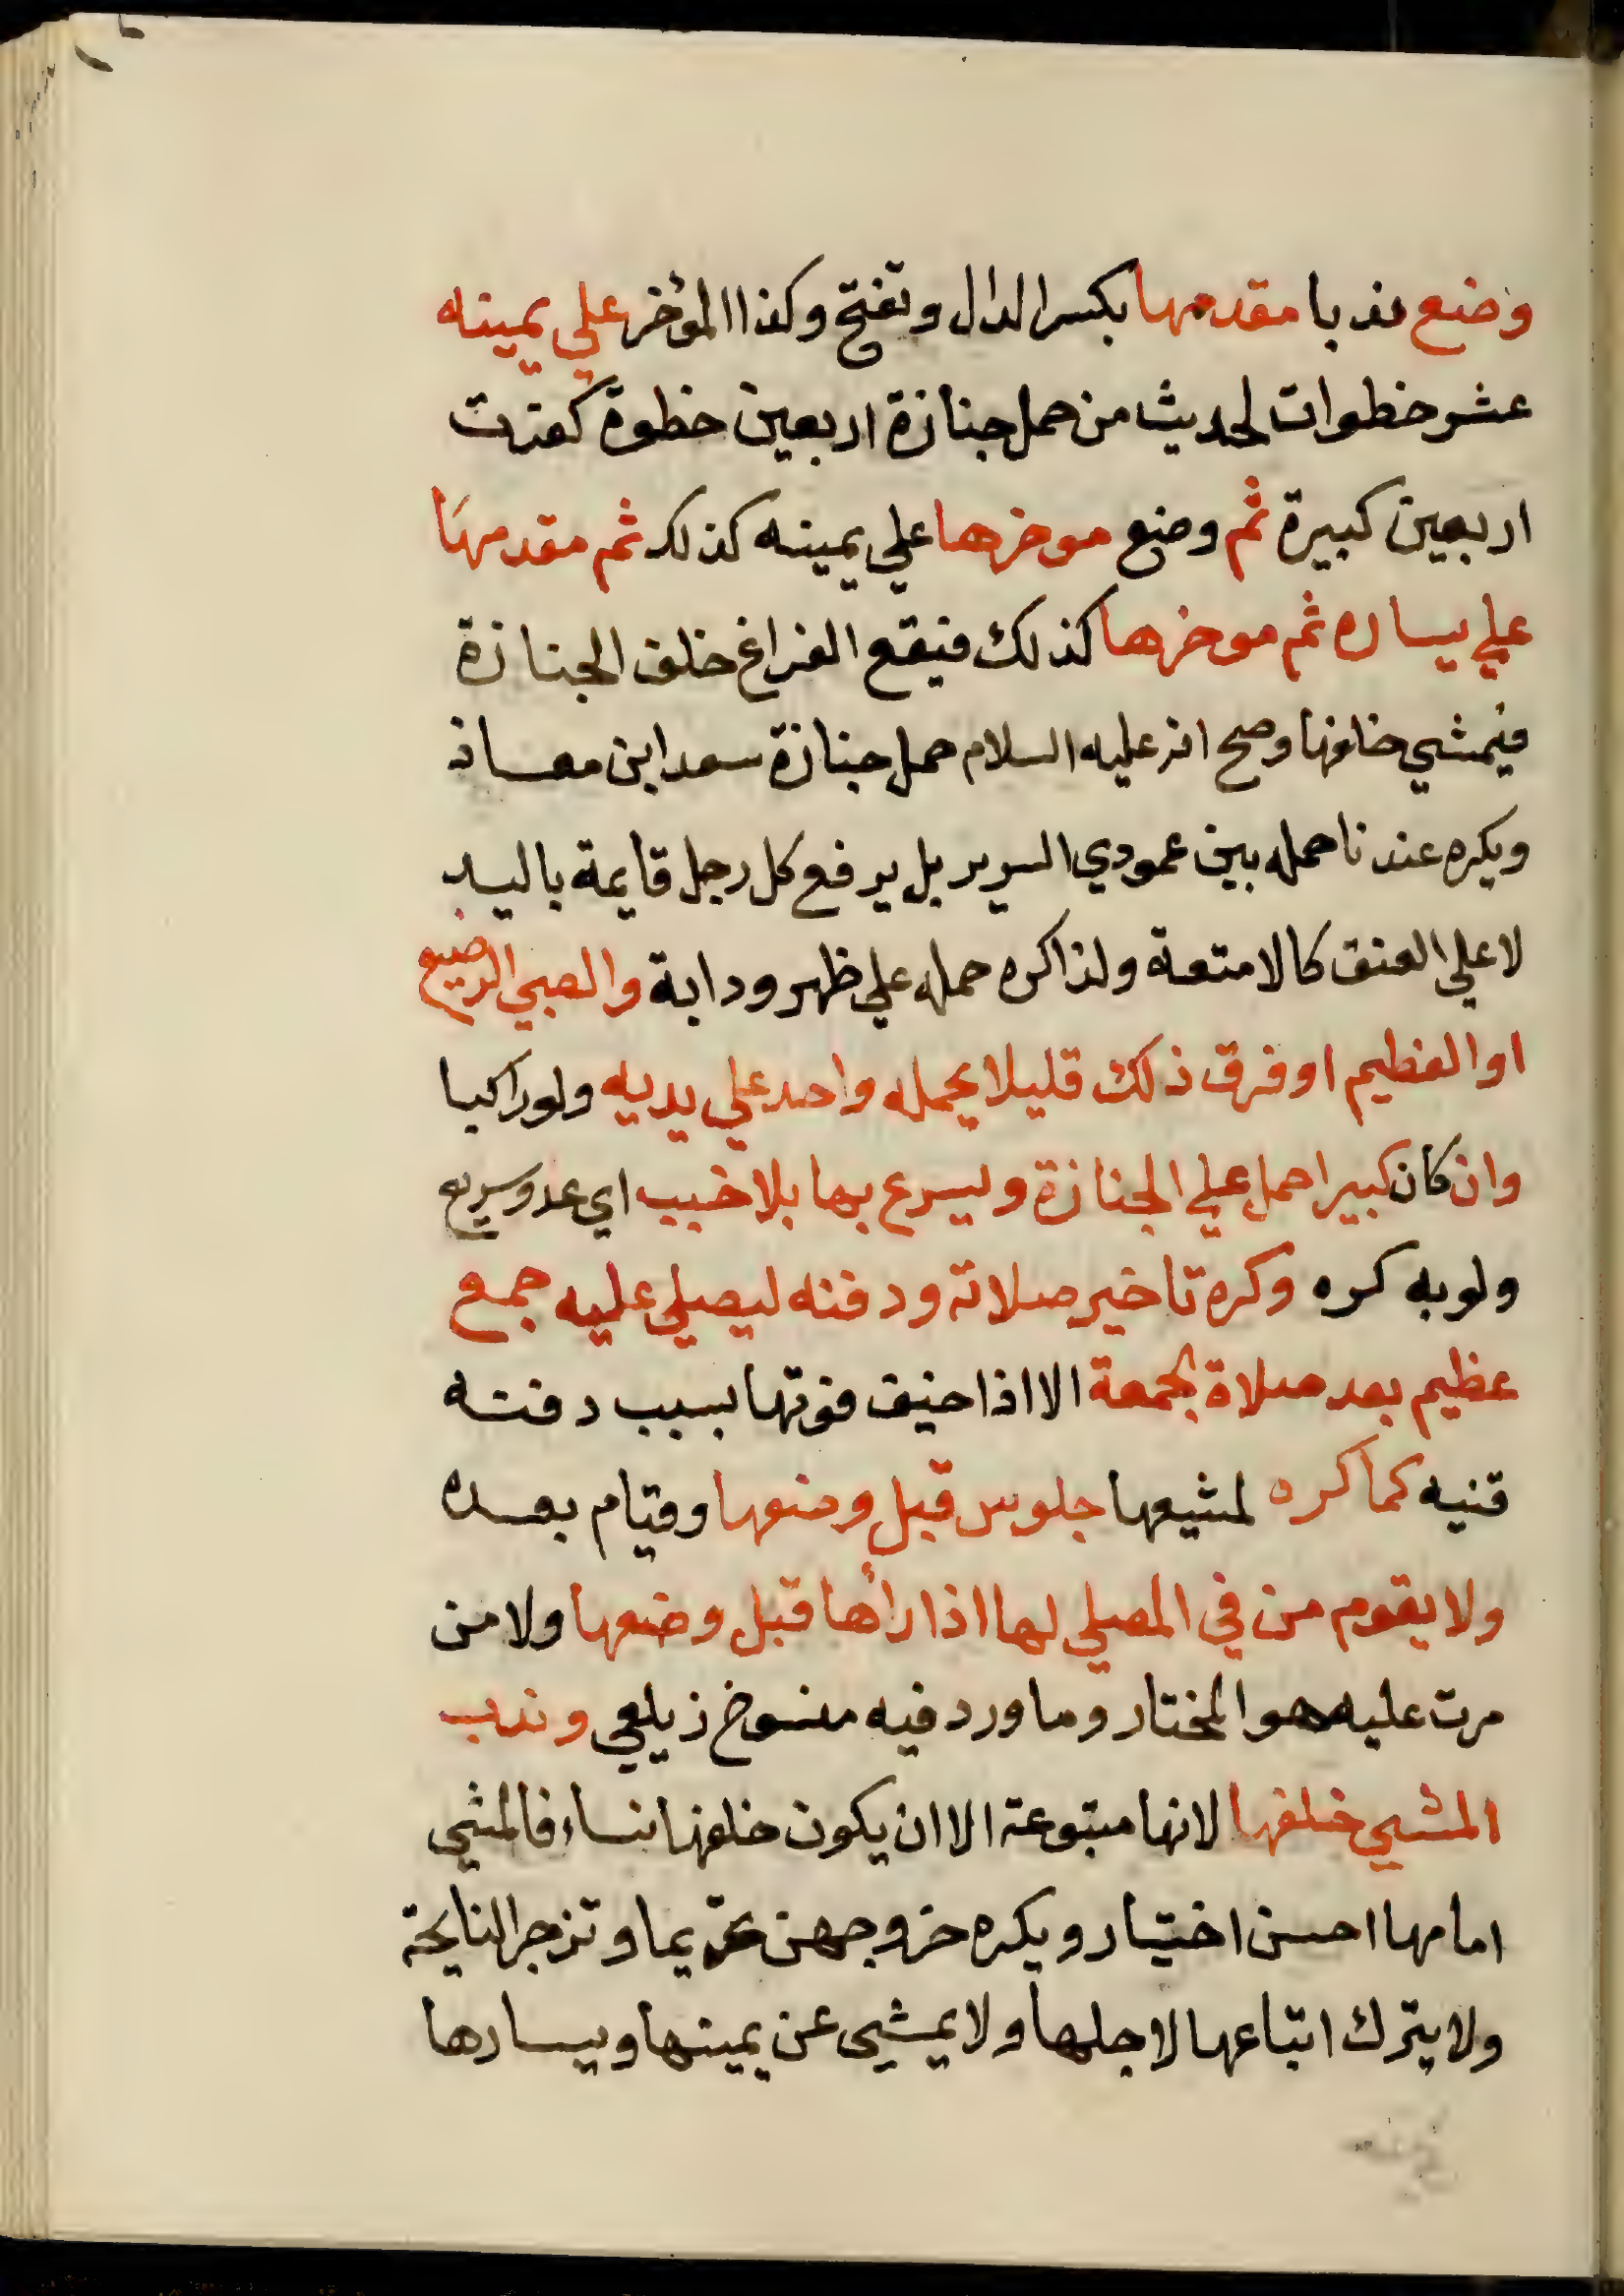 وضع ندبا مقدمها بكسر الدال وتفتح وكذا المؤخر علي يمينه
عشر خطوات لحديث من حمل جنازة اربعين خطوة كفرت
اربعين كبيرة ثم وضع موخرها علي يمينه كذلك ثم مقدمها
علي يساره ثم موخرها كذلك فيقع الفراغ خلف الجنازة
فيمشي خلفها وصح انه عليه السلام حمل جنازة سعد ابن معاذ
ويكره عندنا حمله بين عمودي السرير بل يرفع كل رجل قايمة باليد
لا علي العنق كالامتعة ولذا كره حمله علي ظهر ودابة والصبي الرضيع
او الفطيم او فوق ذلك قليلا يحمله واحد علي يديه ولو راكبا
وان كان كبيرا حمل علي الجنازة ويسرع بها بلا خبب اي عدو سريع
ولو به كره وكره تاخير صلاته ودفنه ليصلي عليه جمع
عظيم بعد صلاة الجمعة الا اذا خيف فوتها بسبب دفنه
قنيه كما كره لمشيعها جلوس قبل وضعها وقيام بعده
ولا يقوم من في المصلي لها اذا رأها قبل وضعها ولا من
مرت عليه هو المختار وما ورد فيه منسوخ زيلعي وندب
المشي خلفها لانها متبوعة الا ان يكون خلفها نساء فالمشي
امامها احسن اختيار ويكره خروجهن تحريما وتزجر النايحة
ولا يترك اتباعها لاجلها ولا يمشي عن يمينها ويسارها